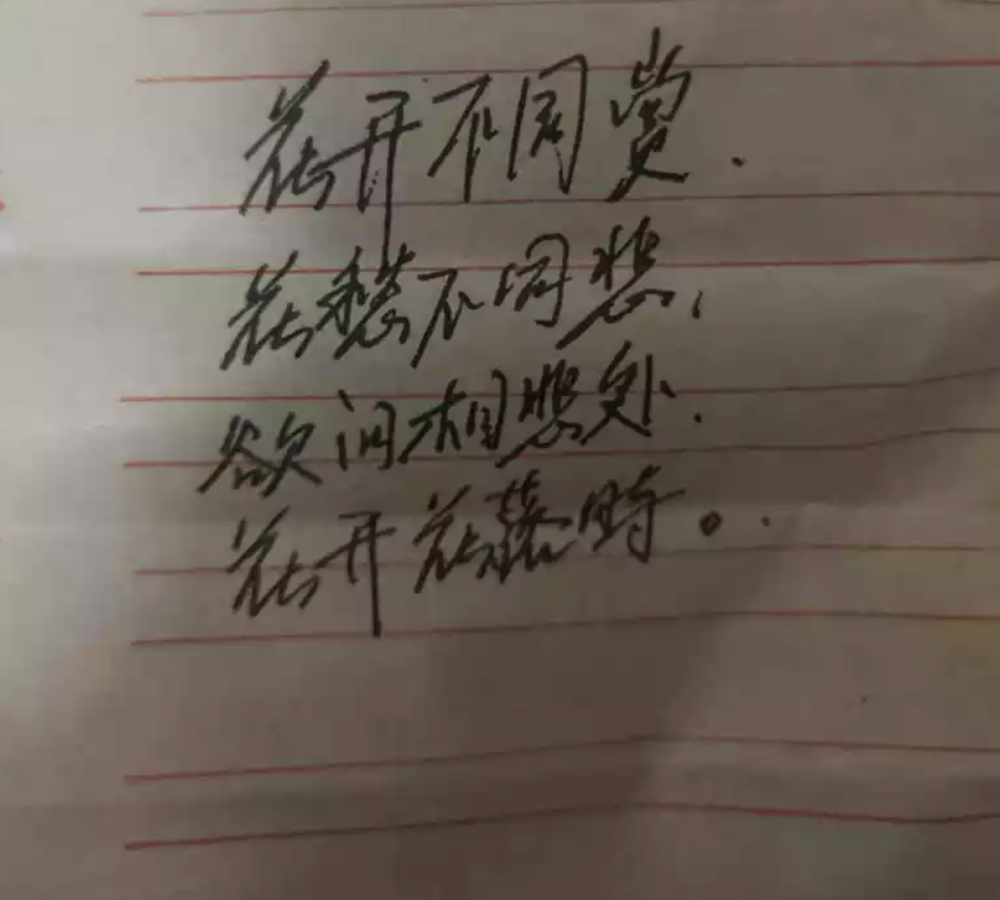 花开不同赏.
花愁不同悲,
欲问相悲处.
花开花落時。.